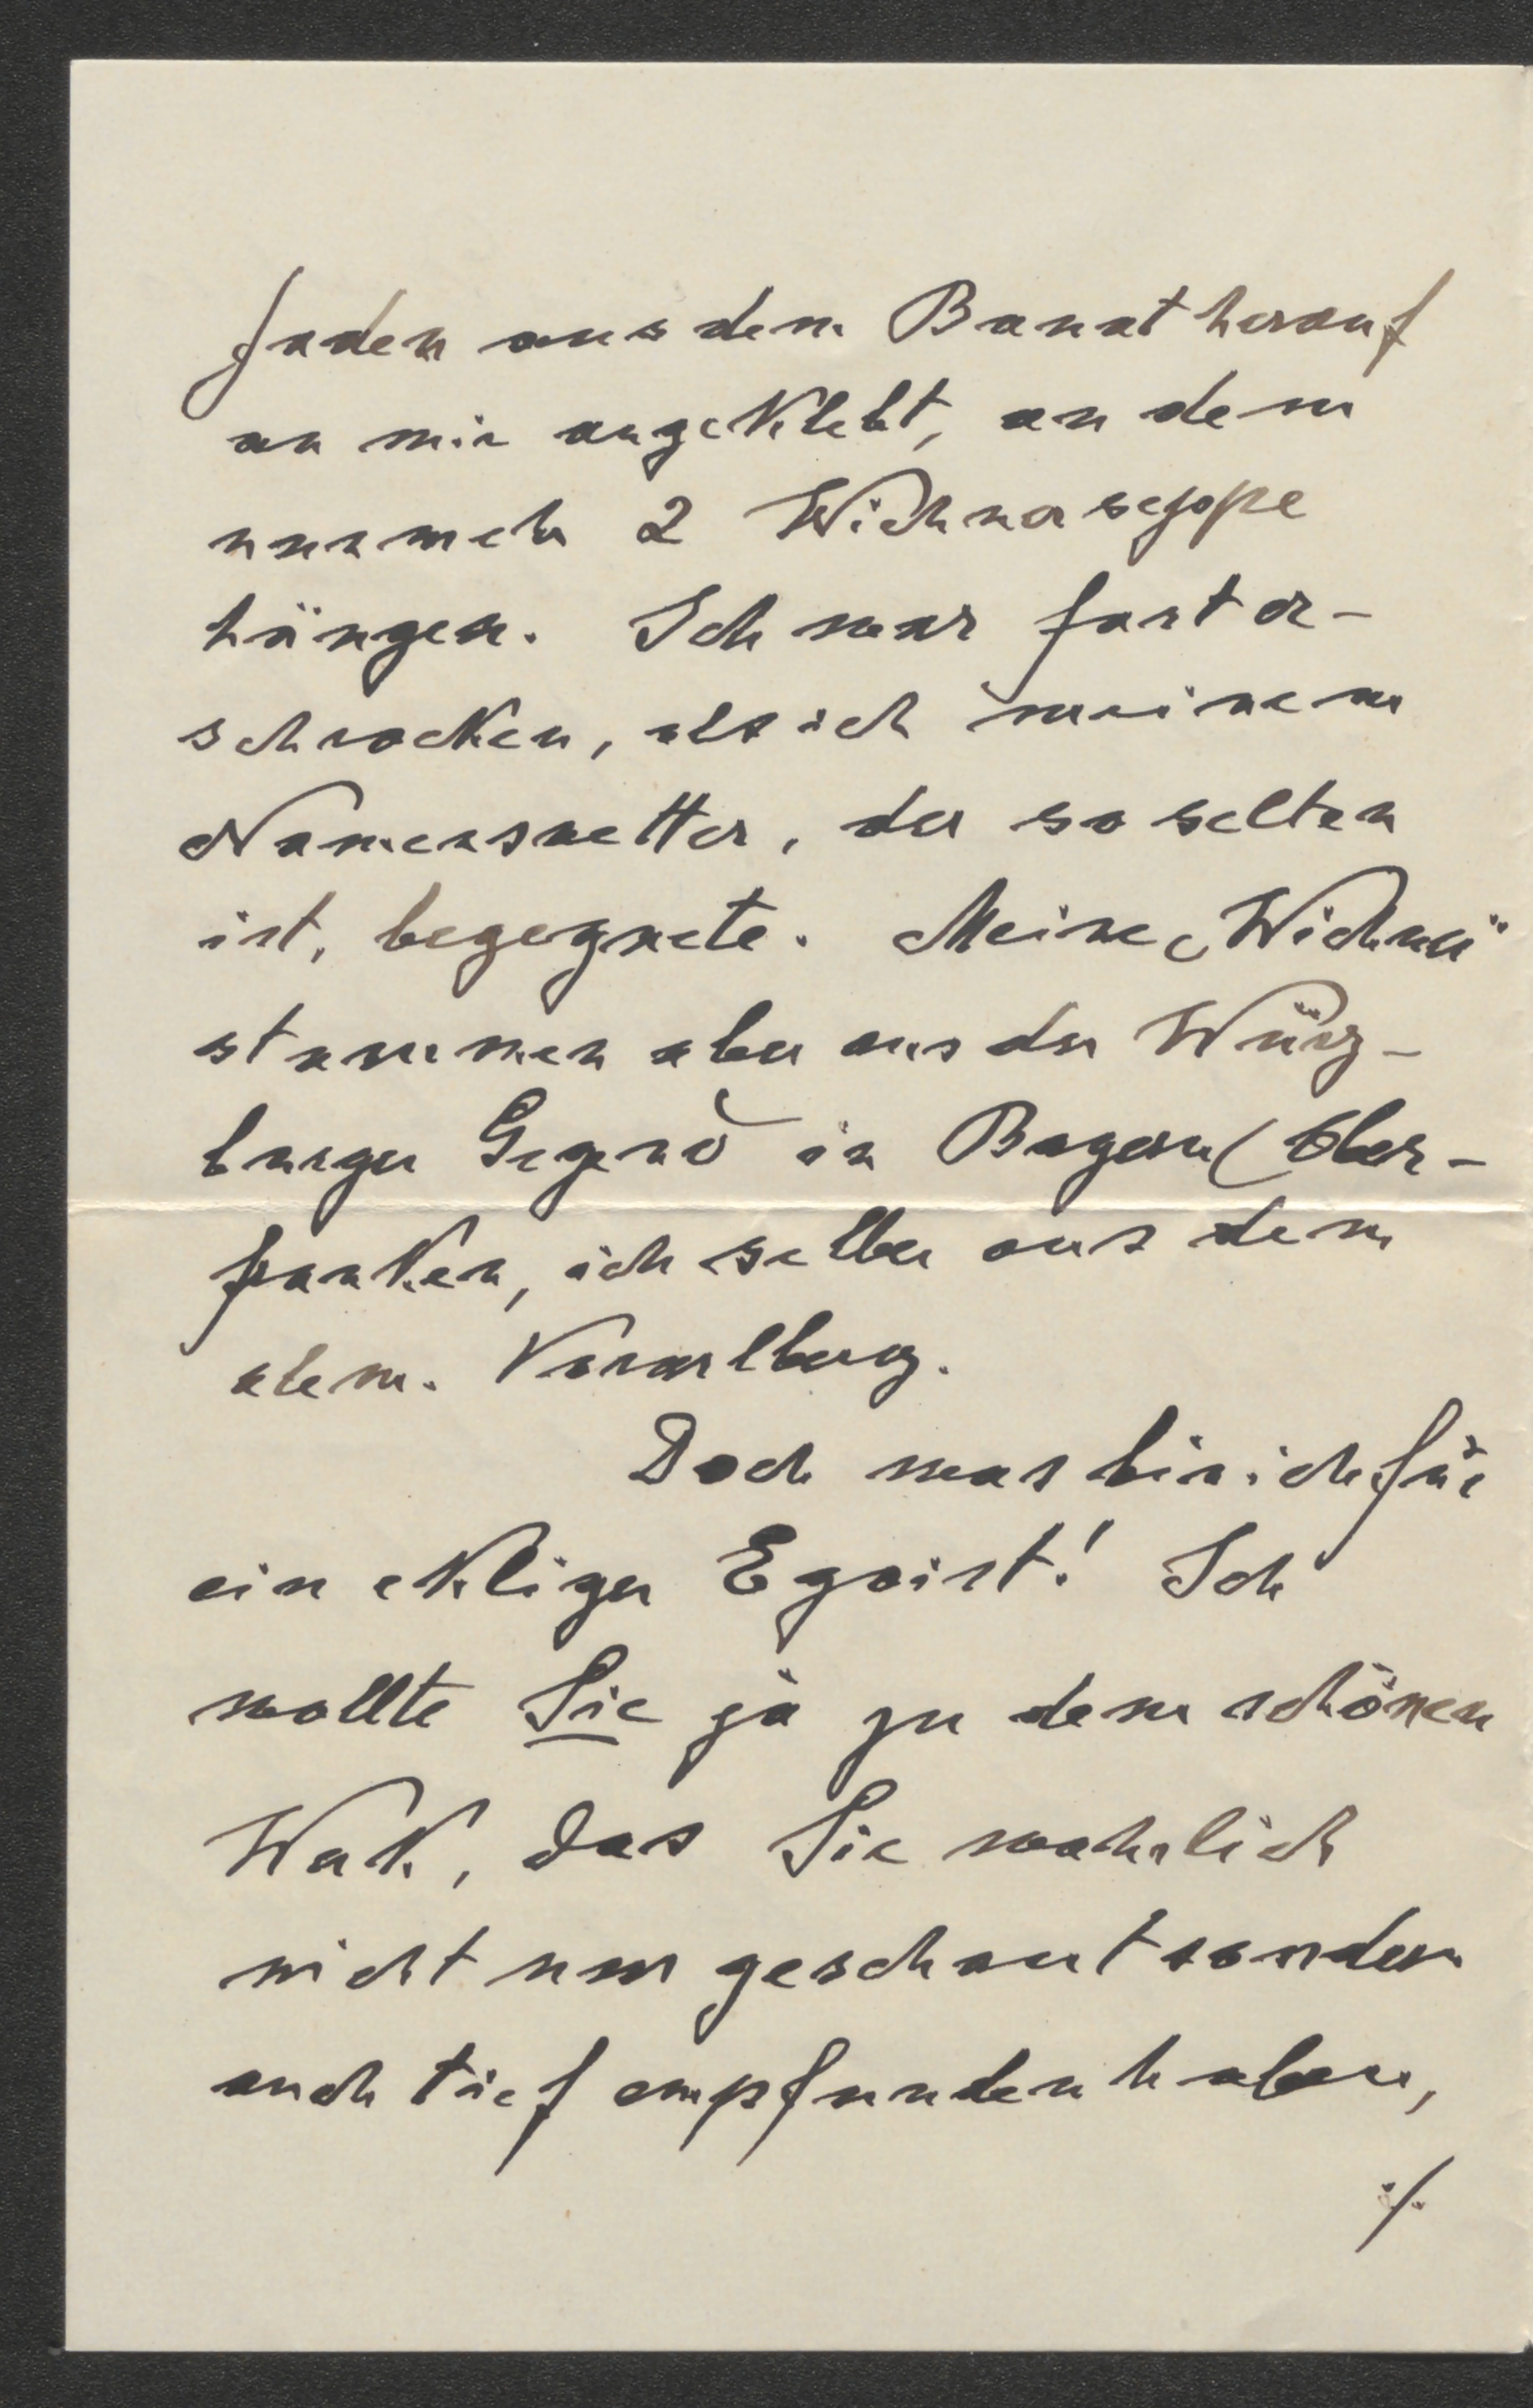 Faden aus dem Banat herauf
an mir angeklebt, an dem
nunmehr 2 Wichnerseppe
hängen. Ich war fast er-
schrocken, als ich meinem
Namensvetter, der so selten
ist, begegnete. Meine „Wichner"
stammen aber aus der Würz-
burger Gegend in Bayern (Ober-
franken, ich selber aus dem
alem. Vorarlberg.
Doch was bin ich für
ein ekliger Egoist! Ich
wollte Sie ja zu dem schönen
Werk, das Sie wahrlich
nicht nur geschaut sondern
auch tief empfunden haben,
./.